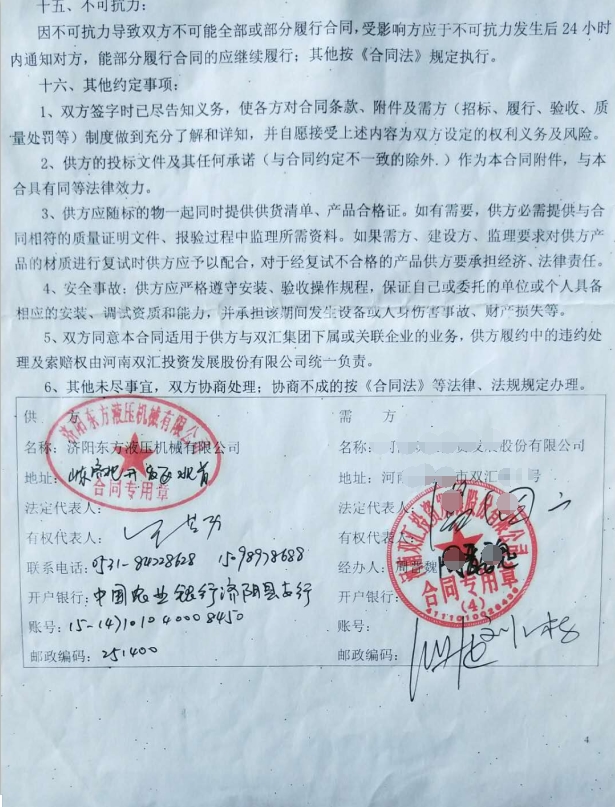 十五、不可抗力：
因不可抗力导致双方不可能全部或部分履行合同，受影响方应于不可抗力发生后 24 小时
内通知对方，能部分履行合同的应继续履行；其他按《合同法》规定执行。
十六、其他约定事项：
1、双方签字时已尽告知义务，使各方对合同条款、附件及需方（招标、履行、验收、质
量处罚等）制度做到充分了解和详知，并自愿接受上述内容为双方设定的权利义务及风险。
2、供方的投标文件及其任何承诺（与合同约定不一致的除外.）作为本合同附件，与本
合具有同等法律效力。
3、供方应随标的物一起同时提供供货清单、产品合格证。如有需要，供方必需提供与合
同相符的质量证明文件、报验过程中监理所需资料。如果需方、建设方、监理要求对供方产
品的材质进行复试时供方应予以配合，对于经复试不合格的产品供方要承担经济、法律责任。
4、安全事故：供方应严格遵守安装、验收操作规程，保证自己或委托的单位或个人具备
相应的安装、调试资质和能力，并承担该期间发生设备或人身伤害事故、财产损失等。
5、双方同意本合同适用于供方与双汇集团下属或关联企业的业务，供方履约中的违约处
理及索赔权由河南双汇投资发展股份有限公司统一负责。
6、其他未尽事宜，双方协商处理；协商不成的按《合同法》等法律、法规规定办理。
供 方
名称：济阳东方液压机械有限公司
地址：
法定代表人：
有权代表人：
联系电话：0531-84228628 15-98978688
开户银行：中国农业银行济阳县支行
账号：15-14101040008450
邮政编码：251400
济阳东方液压机械有限公司
合同专用章
需 方
名称：河 发展股份有限公司
地址：河南 市双汇 号
法定代表人：
有权代表人：
经办人：周晋魏
开户银行：
账号：
邮政编码：
河南双汇投资发展股份有限公司
合同专用章
（4）
4